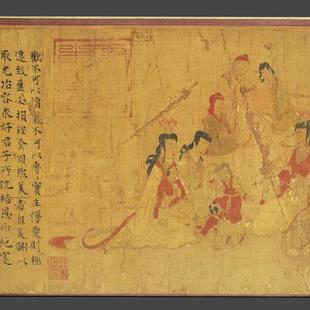 歡不可以瀆寵不可以專專實生慢愛則極
遷致盈必損理有固然美者自美翩以
取尤冶容求好君子所仇結恩而絕寔